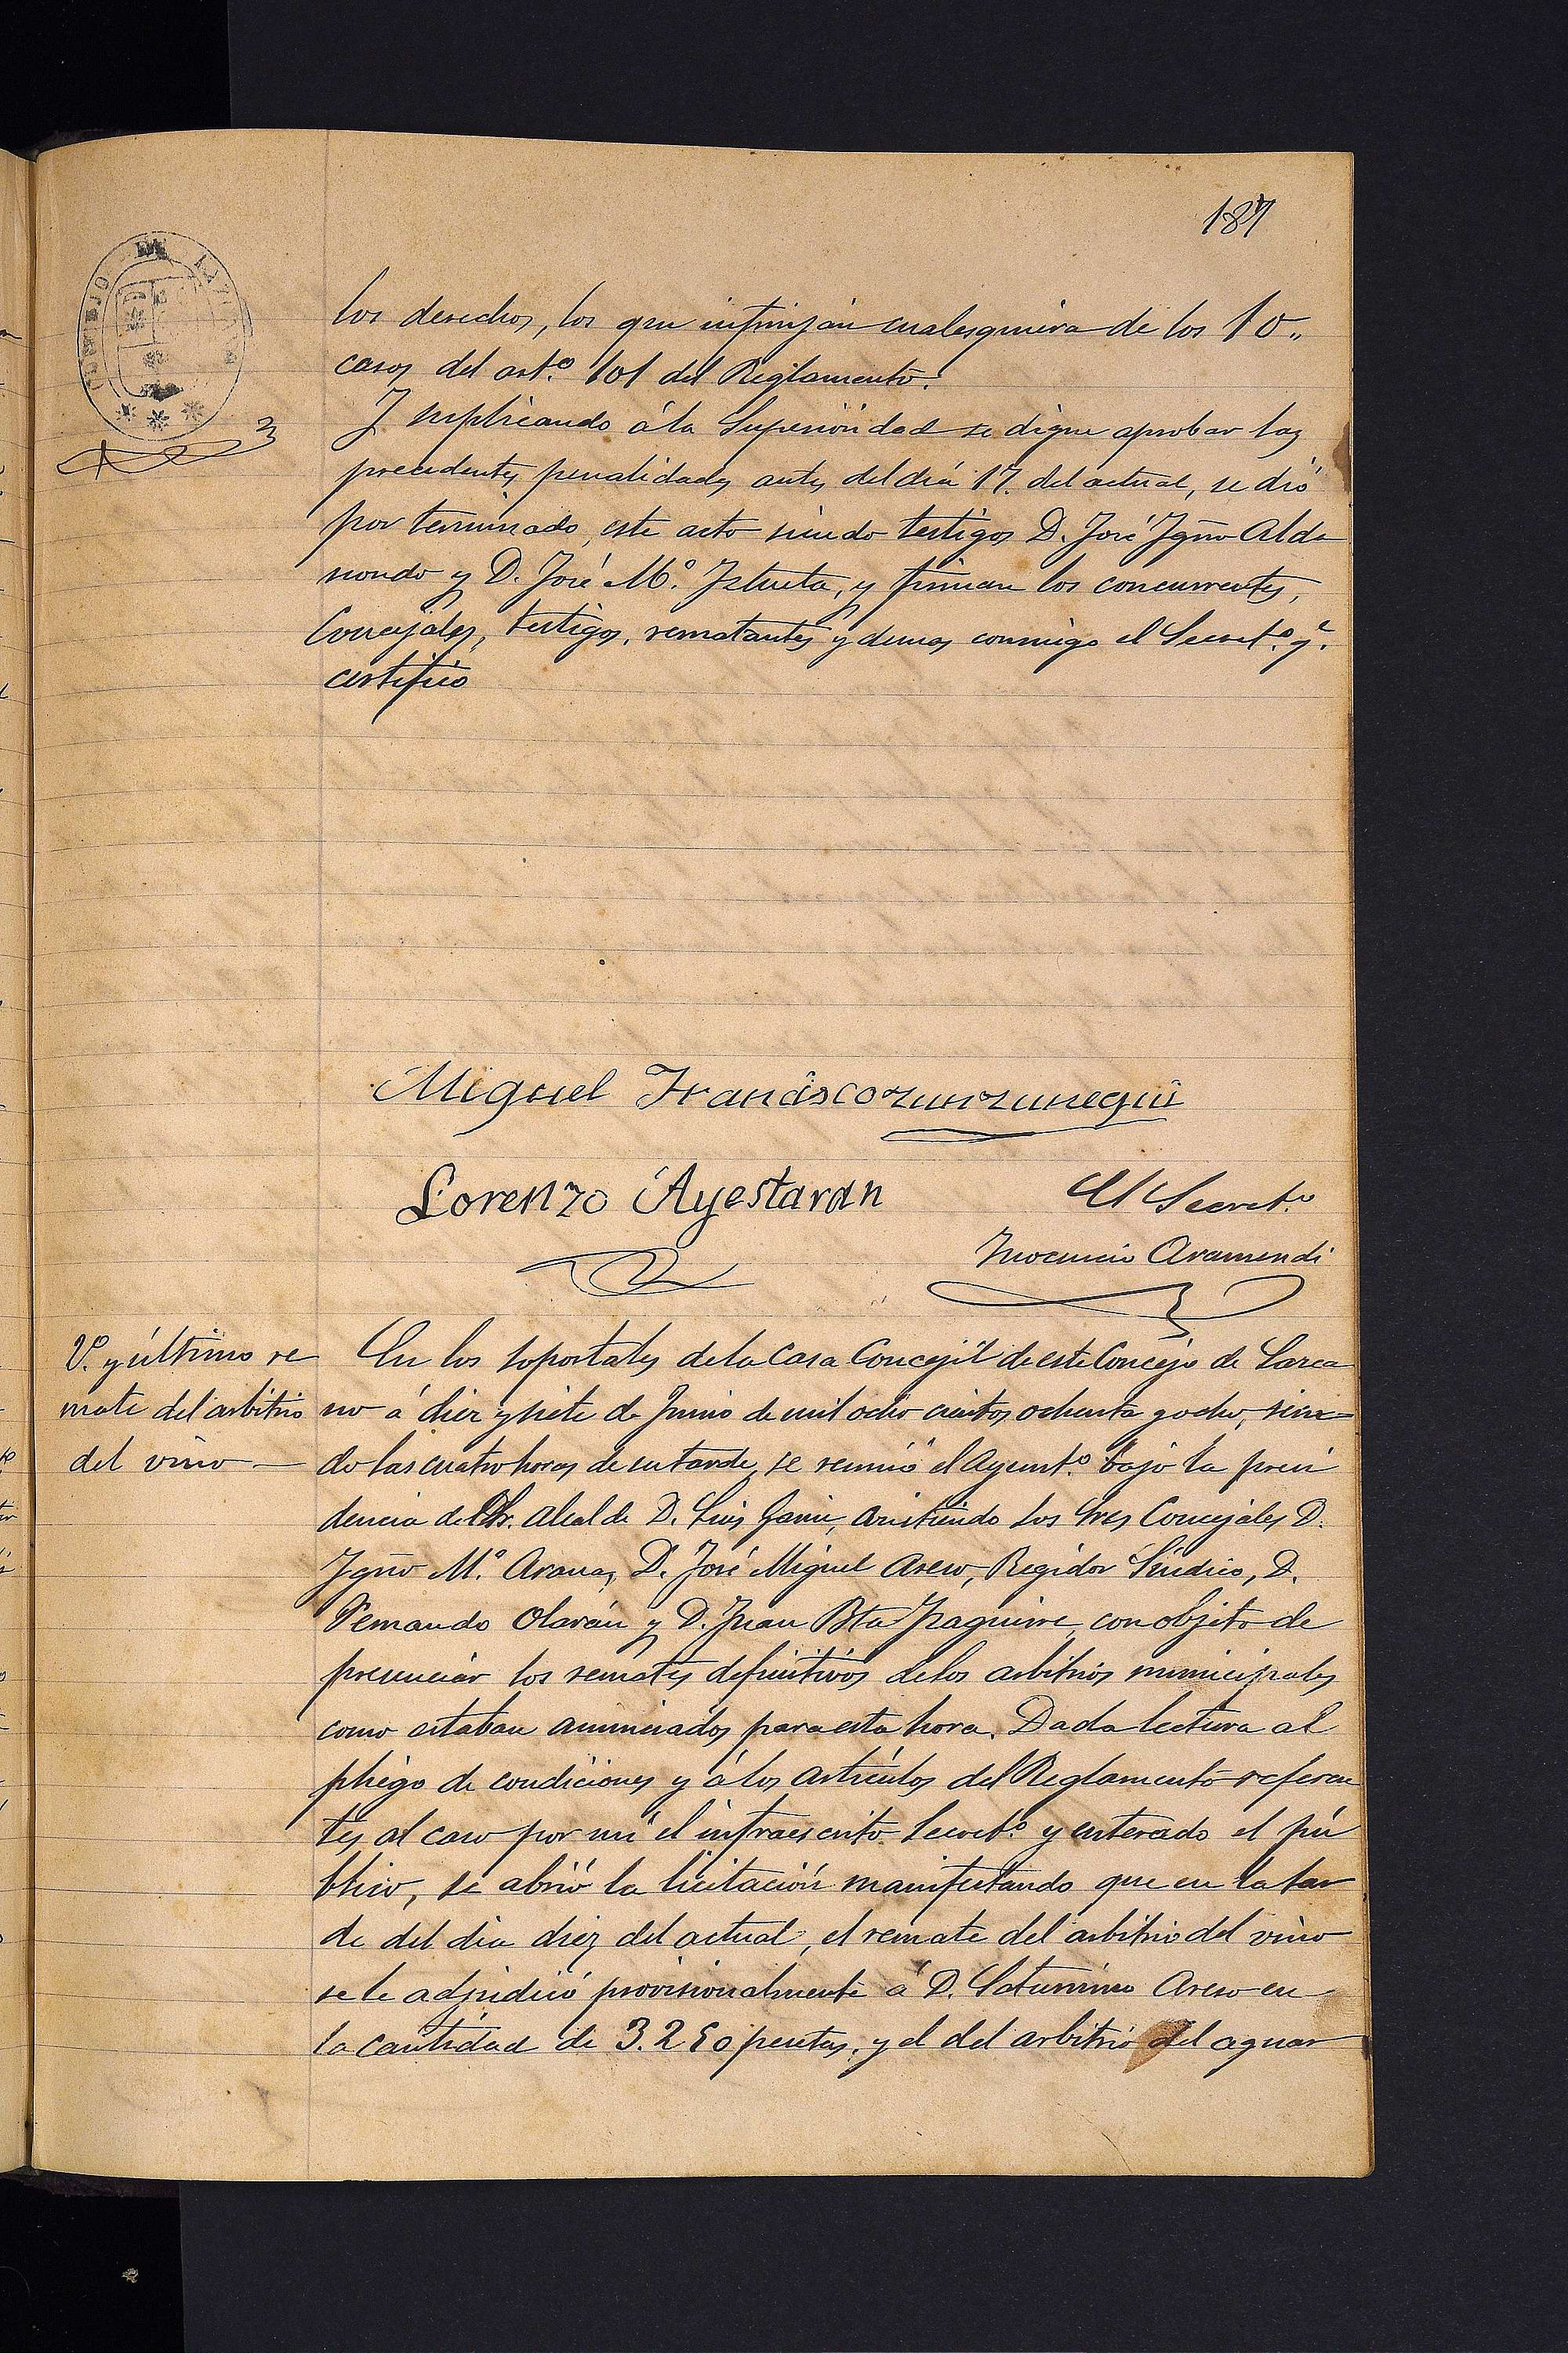 187
CONCEJO DE
los derechos, los que infrinjan cualesquiera de los 10,,
casos del art.º 101 del Reglamento.
Y suplicando á la Superioridad se digne aprobar las
precedentes penalidades antes del dia 17. del actual, se dió
por terminado, este acto siendo testigos D. José Ygño Alda
sondo y D. José M.ª Yztueta, y firman los concurrentes,
Concejales, testigos, rematantes y demas conmigo el Secret.º q.e
certifico
Miguel Francisco zunzunegui
Lorenzo Ayestaran
El Secret.º
Ynocencio Aramendi
V.º y último re
mate del arbitrio
del vino —
En los soportales de la Casa Concejil de este Concejo de Lazca
no á diez y siete de Junio de mil ocho cientos ochenta y ocho, sien=
do las cuatro horas de su tarde, se reunió el Ayunt.º bajo la presi
dencia del Sr. Alcalde D. Luis Garin, asistiendo los Sres Concejales D.
Ygño M.ª Aranas, D. José Miguel Aseso, Regidor Síndico, D.
Fernando Olarán y D. Juan Bta Yzaguirre, con objeto de
presenciar los remates definitivos de los arbitrios municipales
como estaban anunciados para esta hora. Dada lectura al
pliego de condiciones y á los artículos del Reglamento referen
tes al caso por mi el infraescrito Secret.º y enterado el pú
blico, se abrió la licitación manifestando que en la tar
de del dia diez del actual, el remate del arbitrio del vino
se le adjudicó provisionalmente á D. Saturnino Areso en
la cantidad de 3.250 pesetas, y el del arbitrio del aguar